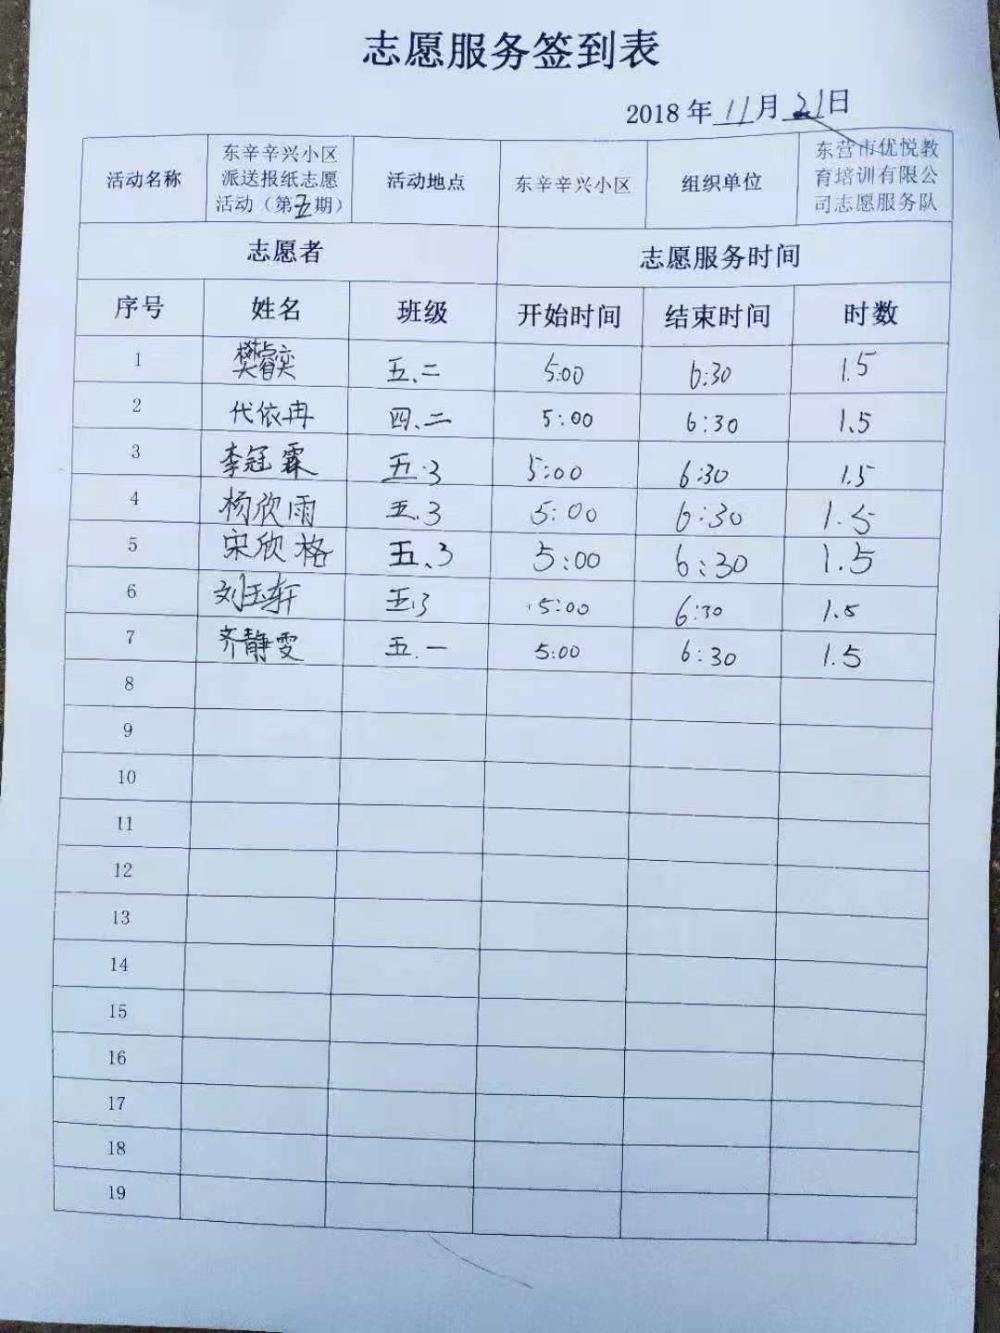 志愿服务签到表
2018年11月21日
活动名称 东辛辛兴小区派送报纸志愿活动（第五期） 活动地点 东辛辛兴小区 组织单位 东营市优悦教育培训有限公司志愿服务队
志愿者 志愿服务时间
序号 姓名 班级 开始时间 结束时间 时数
1 樊睿奕 五.二 5:00 6:30 1.5
2 代依冉 四.二 5:00 6:30 1.5
3 李冠霖 五.3 5:00 6:30 1.5
4 杨欣雨 五.3 5:00 6:30 1.5
5 宋欣格 五.3 5:00 6:30 1.5
6 刘玉轩 五.3 5:00 6:30 1.5
7 齐静雯 五.一 5:00 6:30 1.5
8
9
10
11
12
13
14
15
16
17
18
19